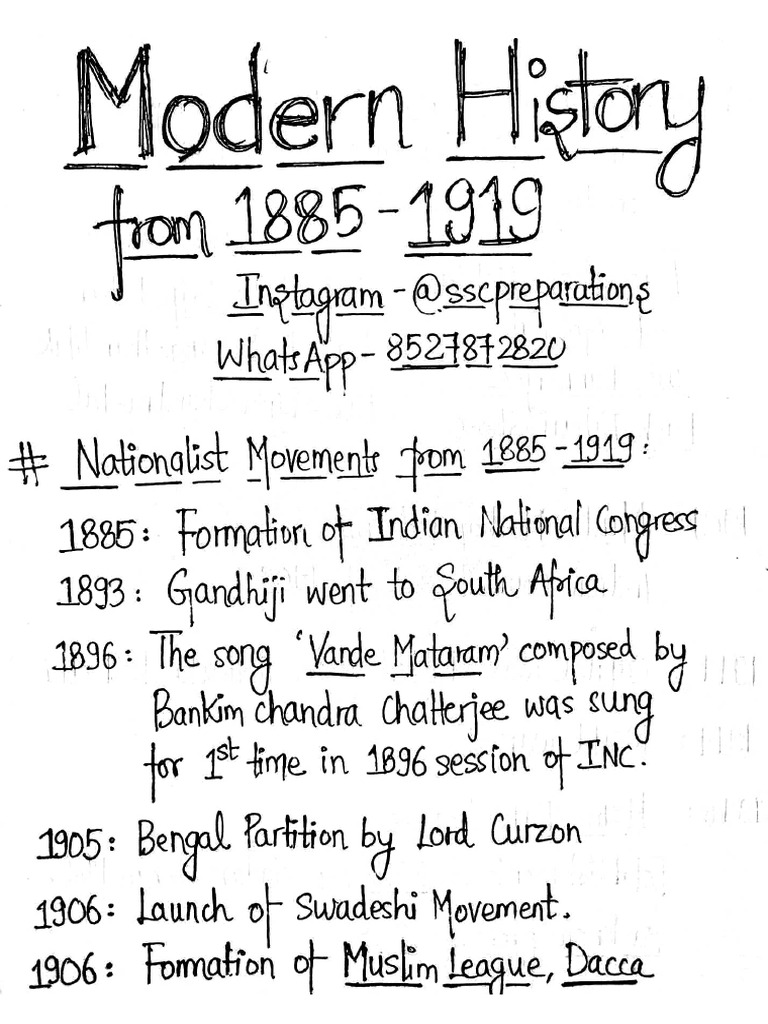 Modern History
from 1885-1919
Instagram - @sscpreparations
WhatsApp - 8527872820
# Nationalist Movements from 1885-1919:
1885: Formation of Indian National Congress
1893: Gandhiji went to South Africa
1896: The song 'Vande Mataram' composed by
Bankim chandra Chatterjee was sung
for 1st time in 1896 session of INC.
1905: Bengal Partition by Lord Curzon
1906: Launch of Swadeshi Movement.
1906: Formation of Muslim League, Dacca